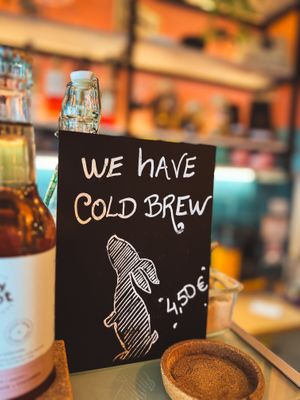 WE hAVE
COLD BREW
4,50€